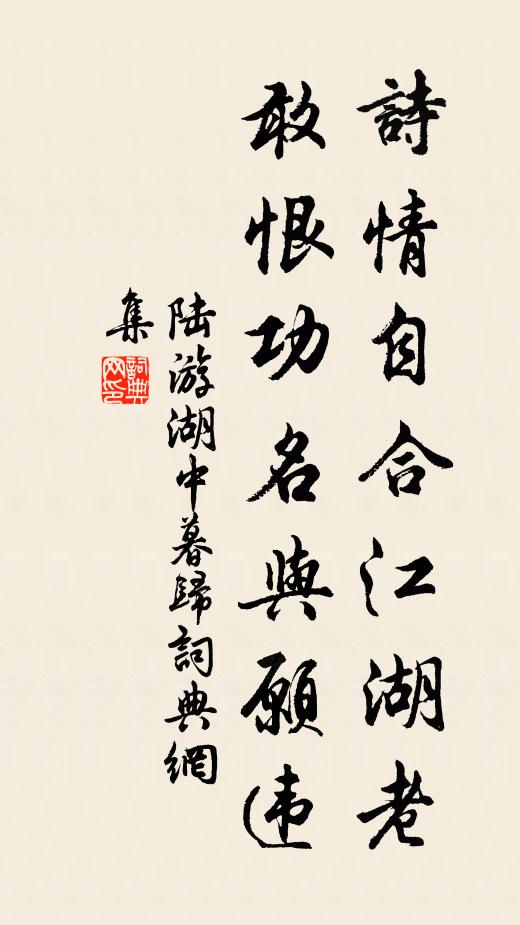 詩情自合江湖老
敢恨功名與願违
陆游湖中暮歸詞典網
集
詞典网印